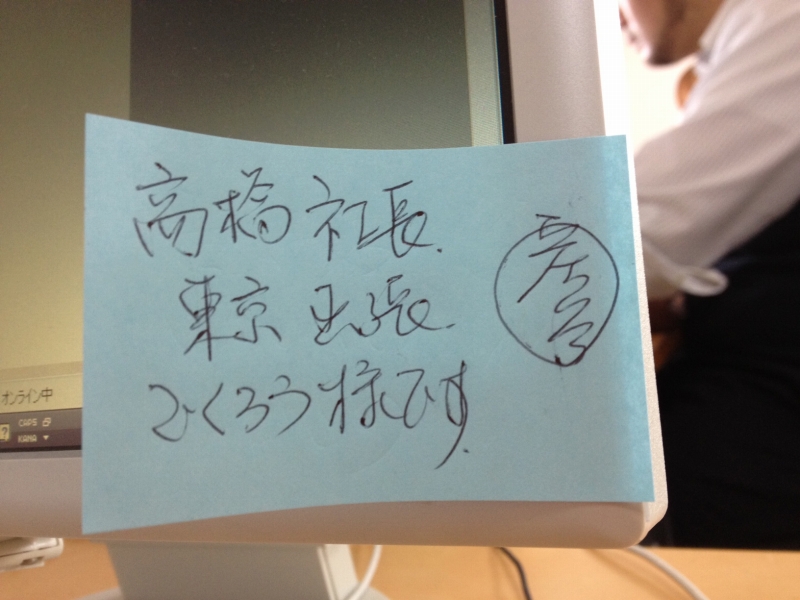 高橋社長
東京出張
ごくろう様です
オンライン中
CAPS
KANA
?